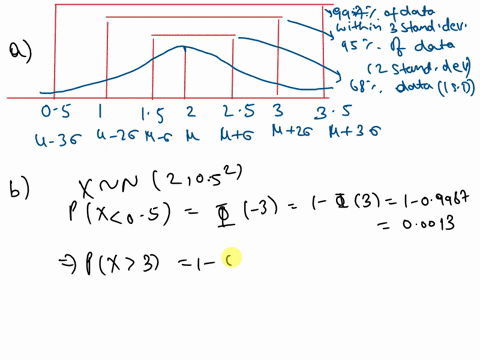 99.7% of data
within 3 stand. dev.
95% of data
(2 stand. dev)
68% data (1 S.D)
a)
0.5 1 1.5 2 2.5 3 3.5
μ-3σ μ-2σ μ-σ μ μ+σ μ+2σ μ+3σ
b) X~N (2,0.5²)
P(X<0.5) = Φ(-3) = 1-Φ(3) = 1-0.9967
= 0.0013
⇒ P(X>3) = 1-